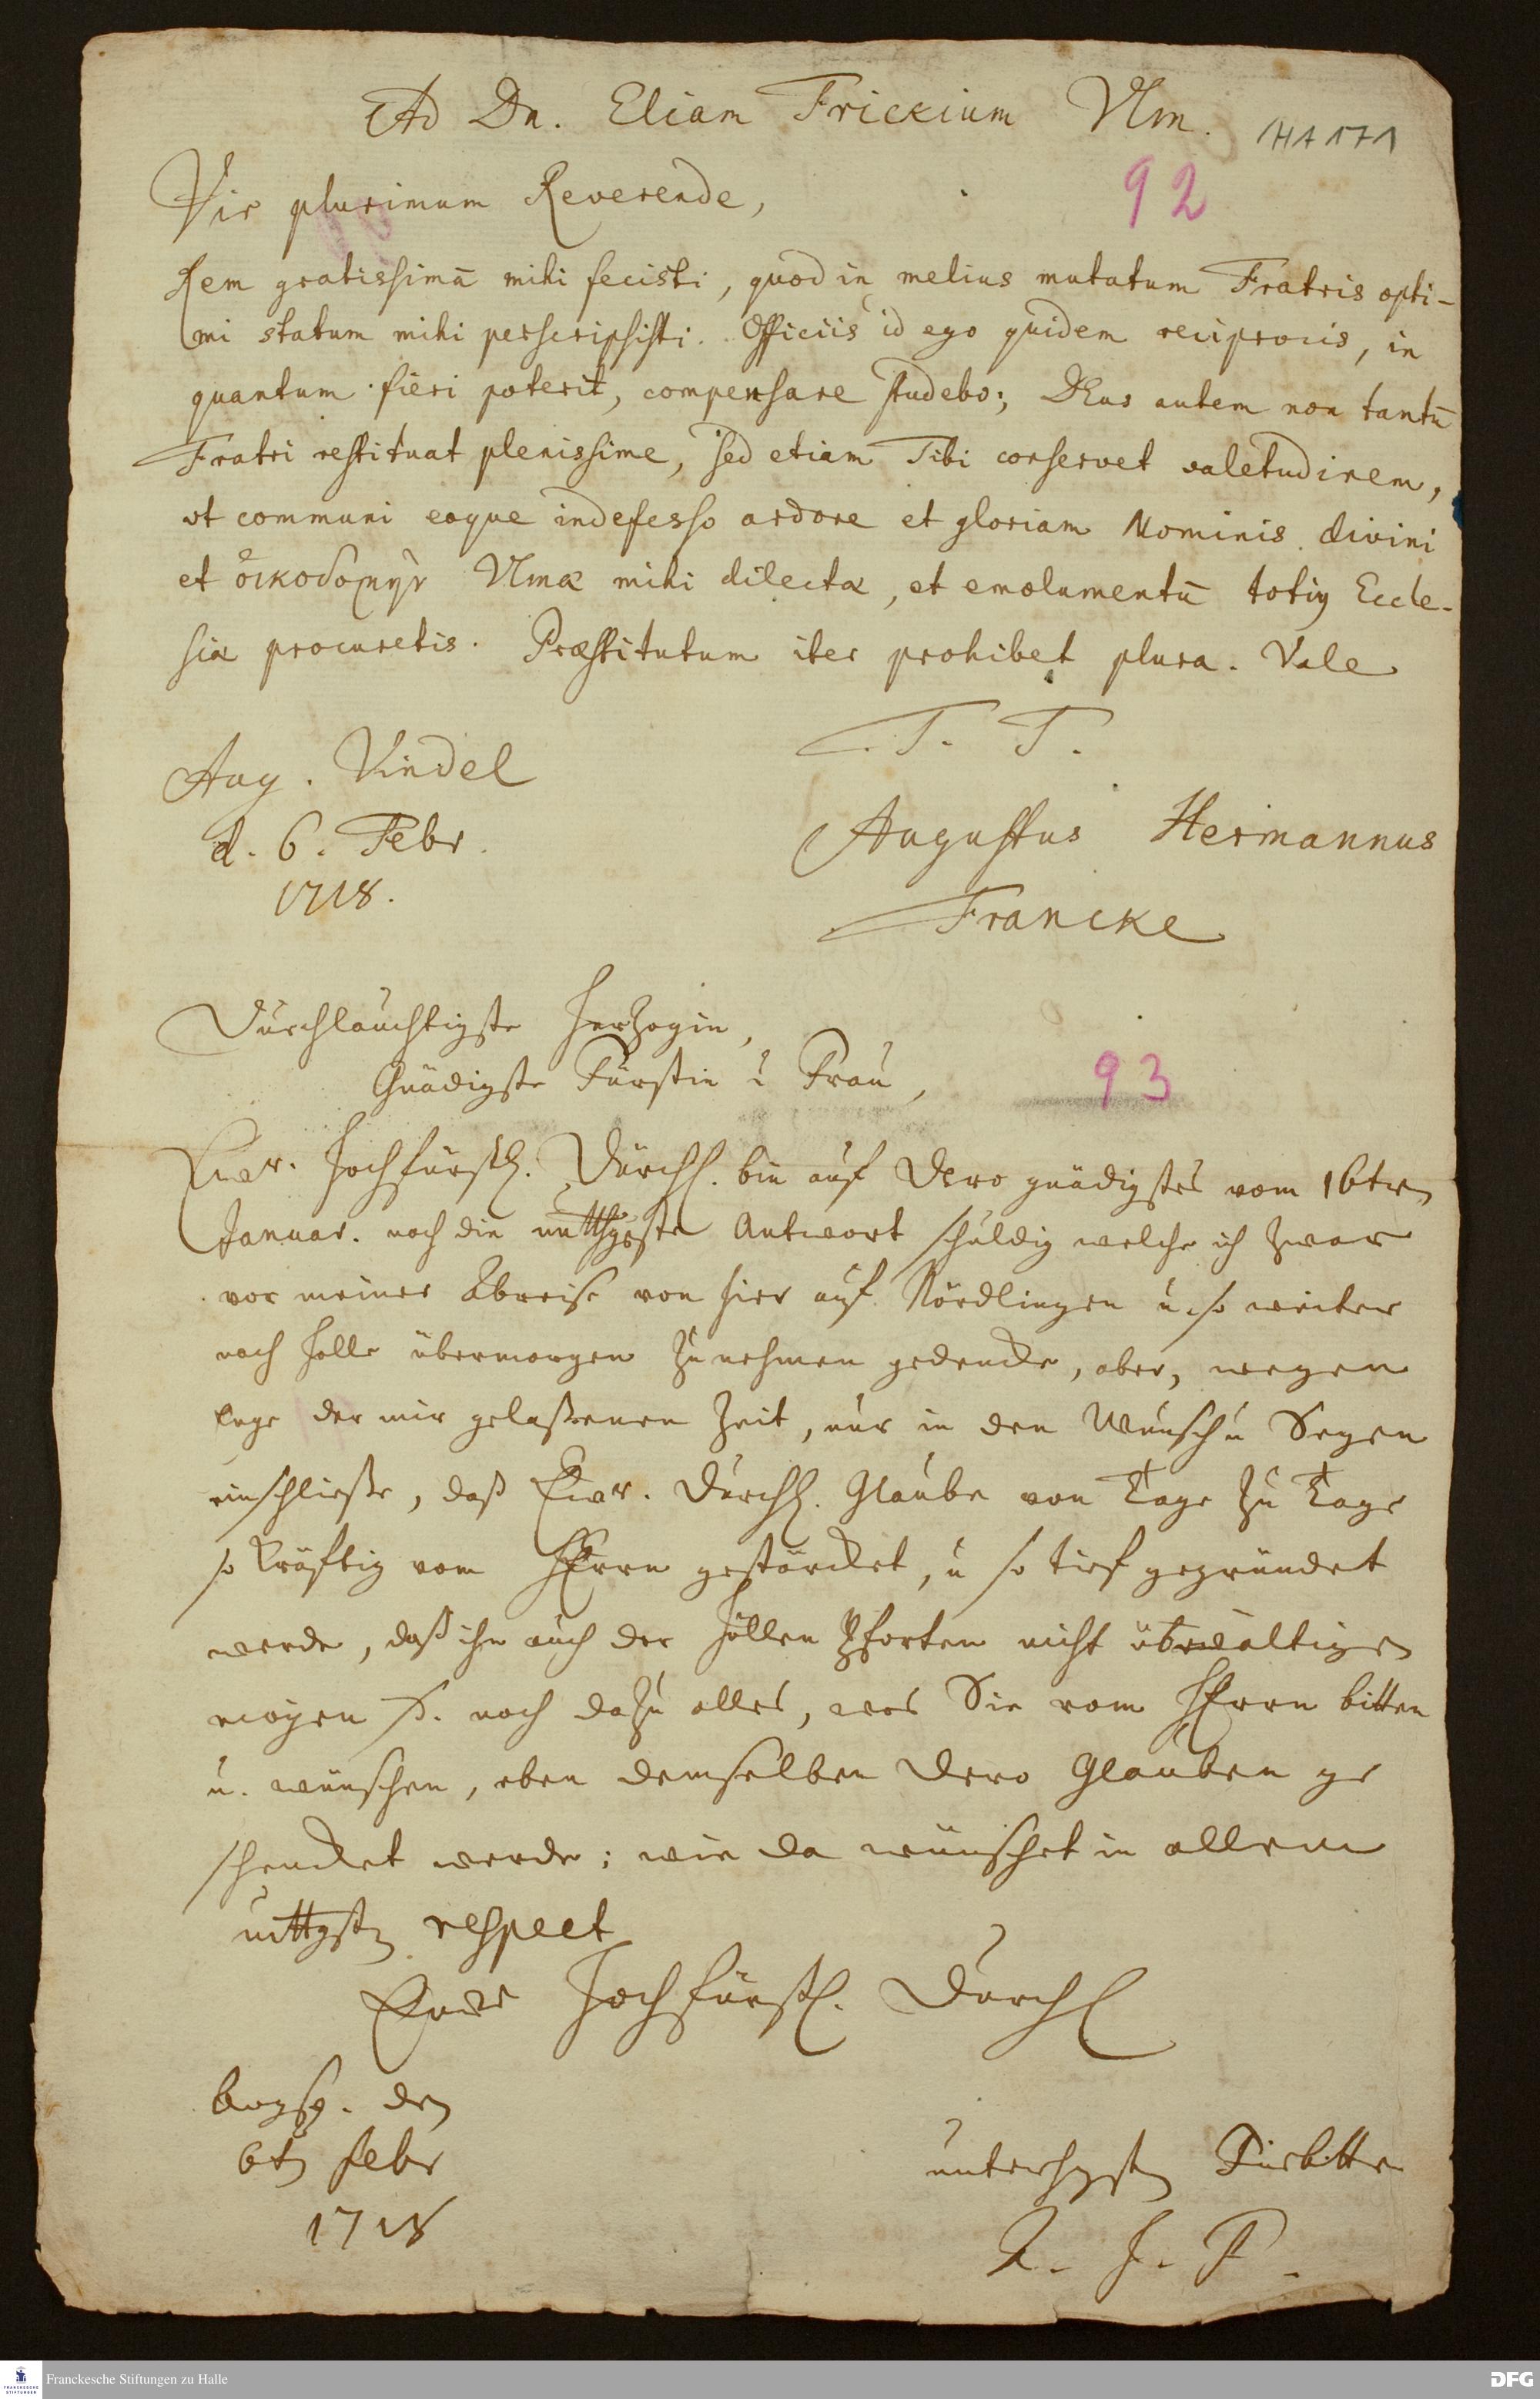 Ad Dn. Eliam Frickium Ulm.
1HA 171
92
Vir plurimum Reverende,
Rem gratissimā mihi fecisti, quod in melius mutatum Fratris opti-
mi statum mihi perscripsisti. Officiis id ego quidem reciprocis, in
quantum fieri poterit, compensare studebo; DEus autem non tantū
Fratri restituat plenissime, sed etiam Tibi conservet valetudinem,
ut communi eoque indefesso ardore et gloriam Nominis divini
et οἰκοδομὴν Ulmæ mihi dilectæ, et emolumentū totiꝯ Eccle-
siæ procuretis. Præstitutum iter prohibet plura. Vale
T. T.
Aug. Vindel
d. 6. Febr.
1718.
Augustus Hermannus
Francke
Durchlauchtigste Hertzogin,
Gnädigste Fürstin u Frau,
93
Ewr. Hochfürstl. Durchl. bin auf Dero gnädigstes vom 16ten
Januar. noch die untthgste Antwort schuldig welche ich zwar
vor meiner Abreise von hier auf Nördlingen u. so weiter
nach Halle übermorgen zu nehmen gedencke, aber, wegen
Enge der mir gelaßenen Zeit, nur in den Wunsch u Segen
einschließe, daß Ewr. Durchl. Glaube von Tage zu Tage
so kräftig vom HErrn gestärcket, u so tief gegründet
werde, daß ihn auch der Höllen Pforten nicht überwältigen
mögen p. noch dazu alles, was Sie vom HErrn bitten
u. wünschen, eben demselben Dero Glauben ge
schencket werde; wie da wünschet in allem
unttgstn respect
Ewr Hochfürstl. Durchl
Augsp. den
6tn Febr
1718
unterthgstn Fürbitter
A. H. F.
Franckesche Stiftungen zu Halle
DFG